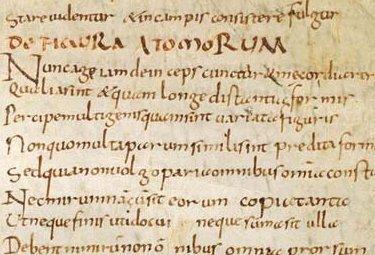 Stare uidentur & in campis consistere fulgur
DE FIGURA ATOMORUM
Nunc age iam dein ceps cunctar & nec ordia rer
Qualia sint & quam longe distantias for mis
Percipe multigenis quam sint uareata figuris
Non quo multa parum simili sint predita form
Sed quia non uolgo paria omnibus omnia consta
Nec mirum sit eorum copia tanta
Ut neque finis uti docui neque suma sit ulla
Debent nimirum non omnibus omnia prorsum